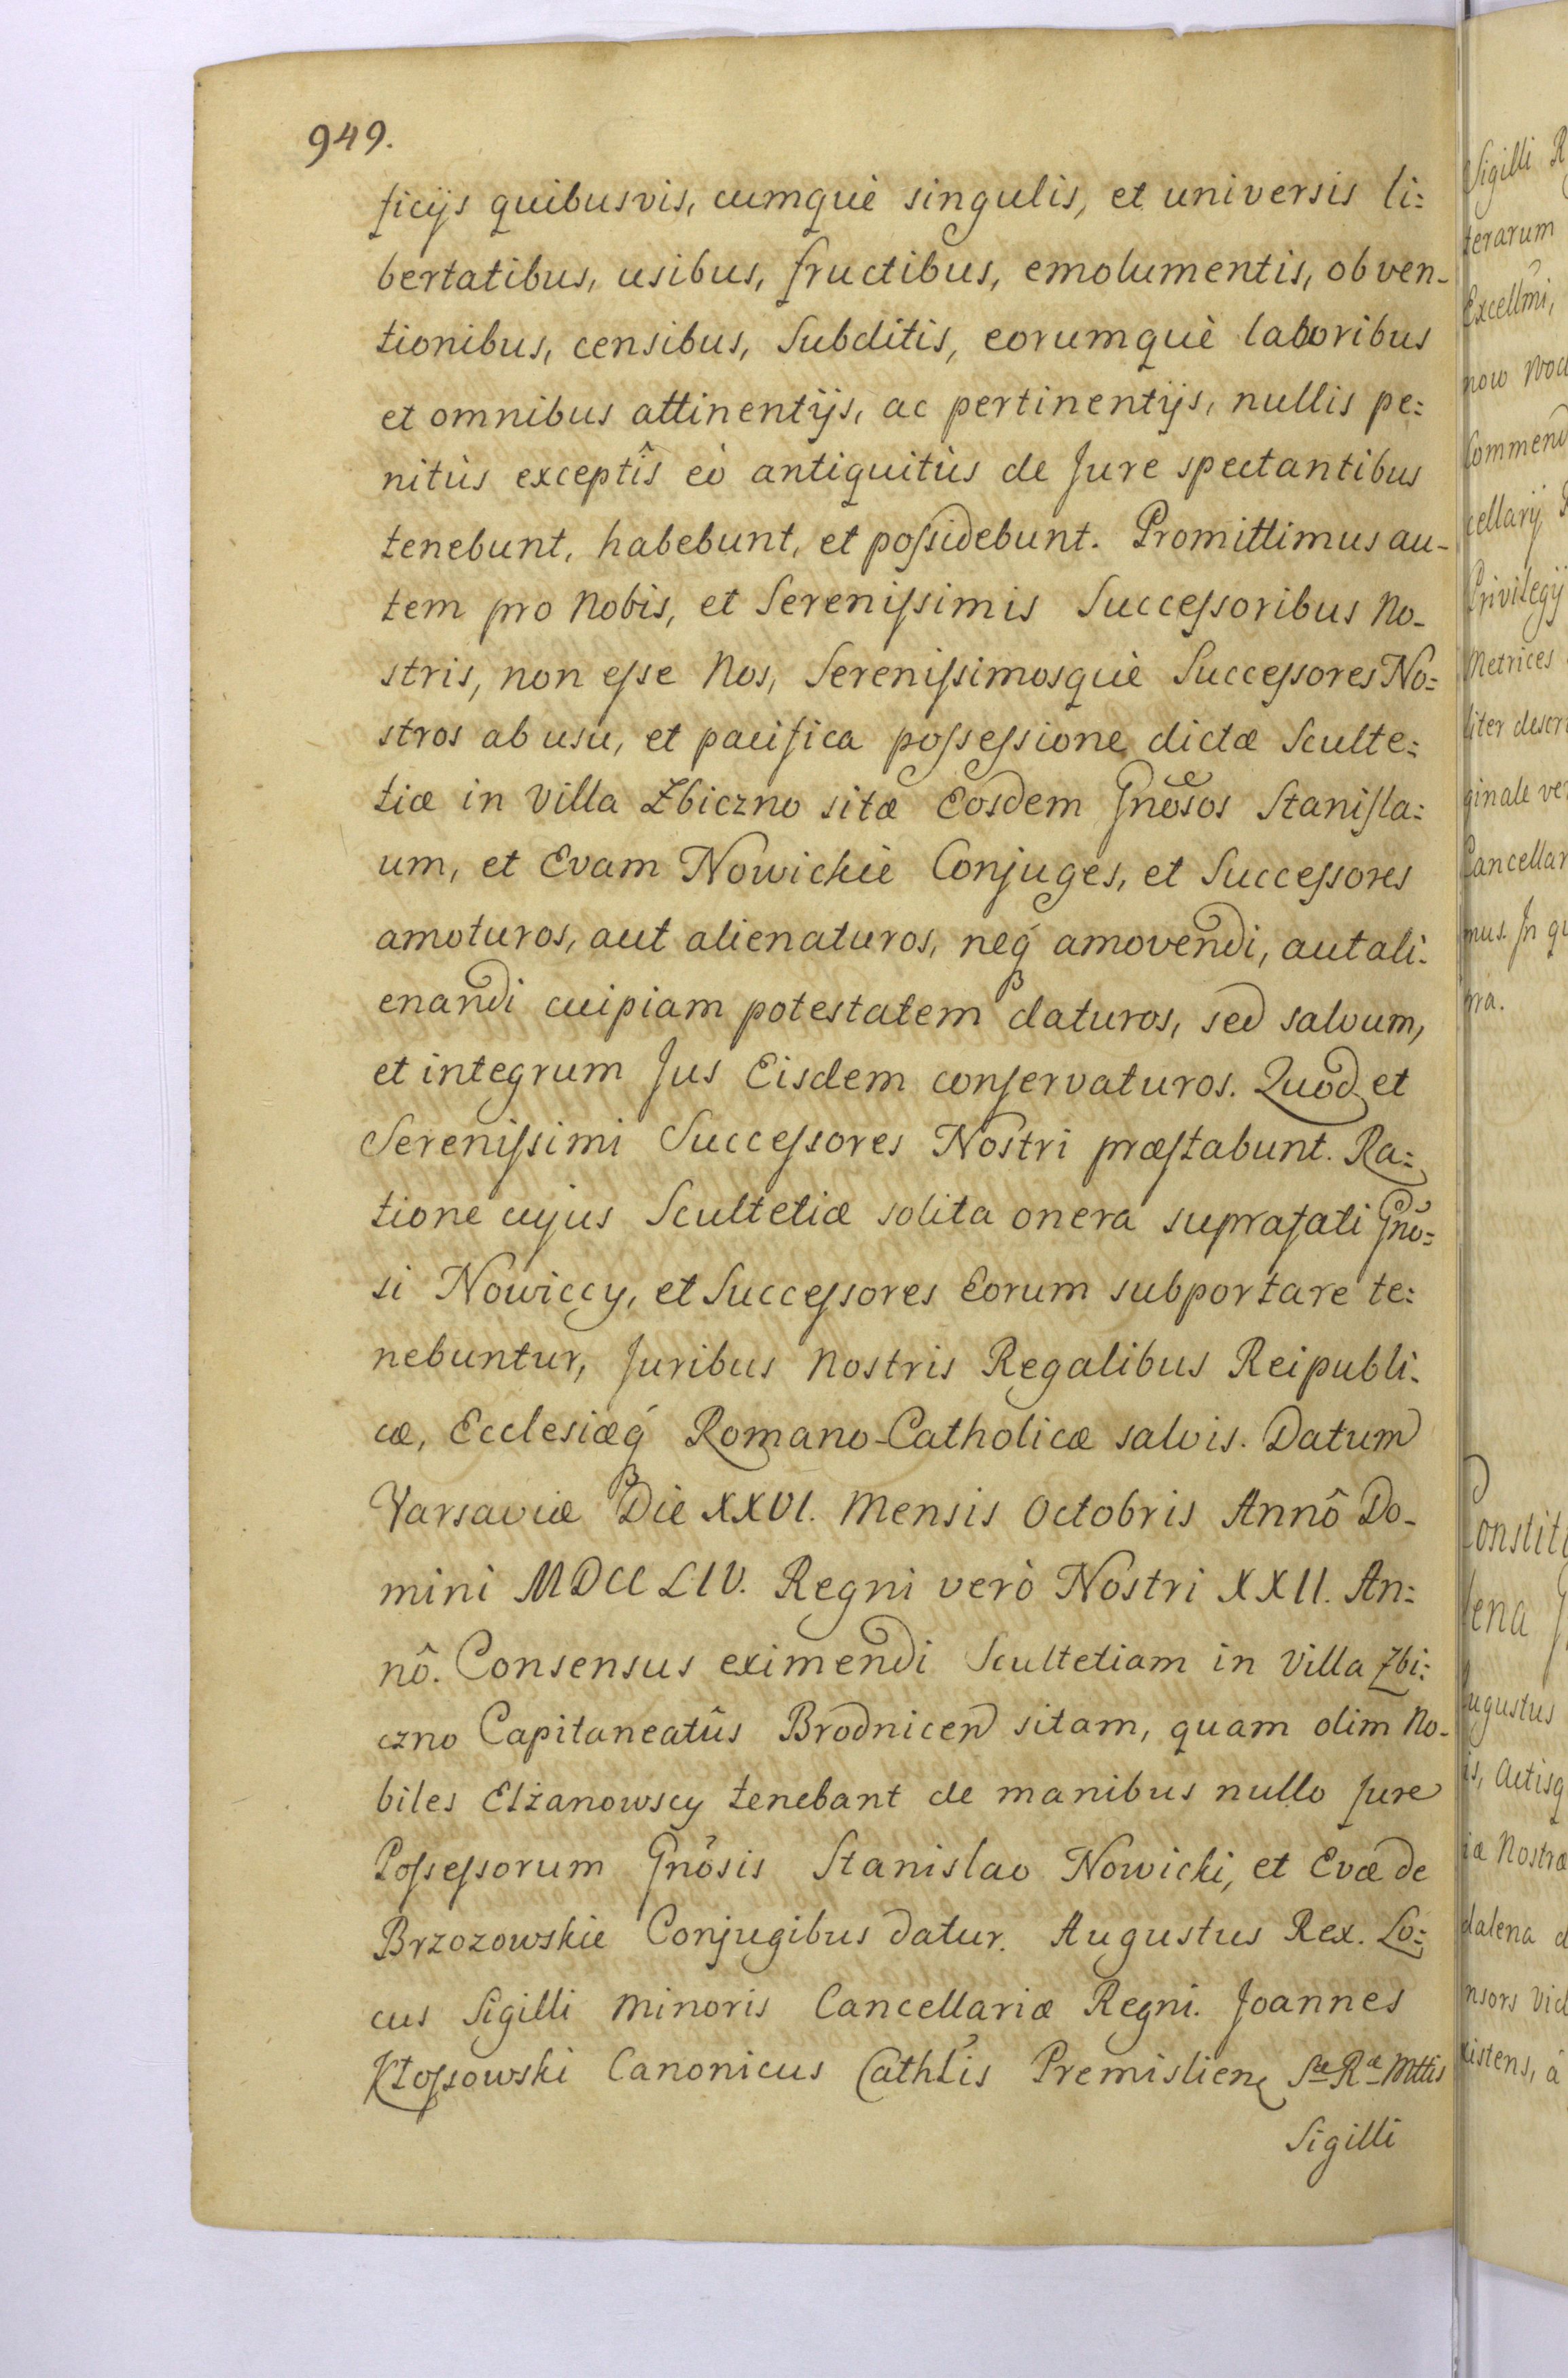 949.
ficijs quibusvis, cumquè singulis, et universis li:
bertatibus, usibus, fructibus, emolumentis, obven-
tionibus, censibus, Subditis, eorumquè laboribus
et omnibus attinentijs, ac pertinentijs, nullis pe:
nitùs exceptîs eò antiquitùs de Jure spectantibus
tenebunt, habebunt, et poſsidebunt. Promittimus au-
tem pro Nobis, et Sereniſsimis Succeſsoribus No-
stris, non eſse Nos, Sereniſsimosquè Succeſsores No:
stros ab usu, et pacifica poſseſsione dictæ Sculte:
tiæ in Villa Zbiczno sitæ Eosdem Gnõsos Staniſla:
um, et Evam Nowickie Conjuges, et Succeſsores
amoturos, aut alienaturos, neq́ amovendi, aut ali:
enandi cuipiam potestatem daturos, sed salvum,
et integrum Jus Eisdem conſervaturos. Quod et
Sereniſsimi Succeſsores Nostri præſtabunt. Ra:
tione cujus Scultetiæ solita onera suprafati Gnõ:
si Nowiccy, et Succeſsores Eorum subportare te:
nebuntur, Juribus Nostris Regalibus Reipubli:
cæ, Ecclesiæq́ Romano-Catholicæ salvis. Datum
Varsaviæ Die XXVI. Mensis Octobris Annô Do-
mini MDCCLIV. Regni verò Nostri XXII. An:
nô. Consensus eximendi Scultetiam in Villa Zbi:
czno Capitaneatûs Brodnicen sitam, quam olim No-
biles Elżanowscy tenebant de manibus nullo Jure
Poſseſsorum Gnõsis Stanislao Nowicki, et Evæ de
Brzozowskie Conjugibus datur. Augustus Rex. Lo:
cus Sigilli Minoris Cancellariæ Regni. Joannes
Kłoſsowski Canonicus Cathlis Premislien Sæ Ræ Mttis
Sigilli
Sigilli R
terarum
Excellmi,
now
Commend
cellarij
Privilegij
Metrices
liter descri
ginale ve
Cancellar
mus. In qu
Constit
lena
ugustus
is, Actisq
iæ Nostræ
dalena d
nsors
xistens, à